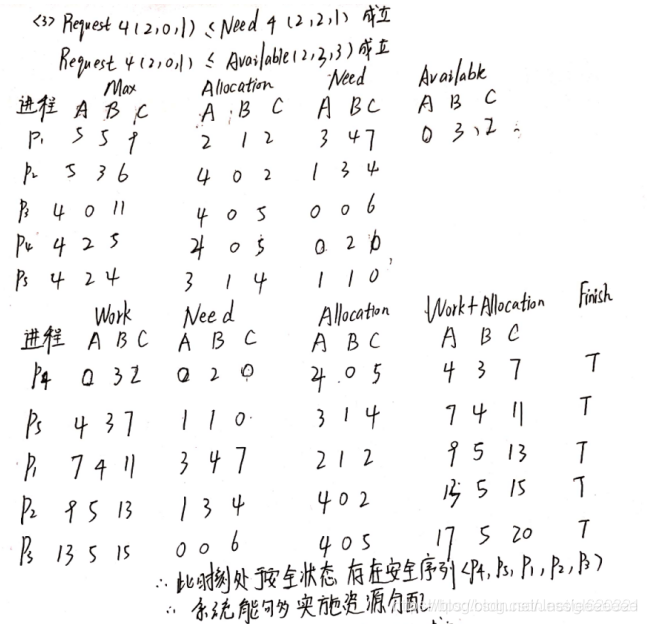 <3> Request 4(2,0,1) ≤ Need 4 (2,2,1) 成立
Request 4(2,0,1) ≤ Available(2,3,3) 成立
Max Allocation Need Available
进程 A B C A B C A B C A B C
P1 5 5 9 2 1 2 3 4 7 0 3 2
P2 5 3 6 4 0 2 1 3 4
P3 4 0 11 4 0 5 0 0 6
P4 4 2 5 4 0 5 0 2 0
P5 4 2 4 3 1 4 1 1 0
Work Need Allocation Work+Allocation Finish
进程 A B C A B C A B C A B C
P4 0 3 2 0 2 0 4 0 5 4 3 7 T
P5 4 3 7 1 1 0 3 1 4 7 4 11 T
P1 7 4 11 3 4 7 2 1 2 9 5 13 T
P2 9 5 13 1 3 4 4 0 2 13 5 15 T
P3 13 5 15 0 0 6 4 0 5 17 5 20 T
∴ 此时刻处于安全状态 存在安全序列<P4, P5, P1, P2, P3>
∴ 系统能够实施资源分配